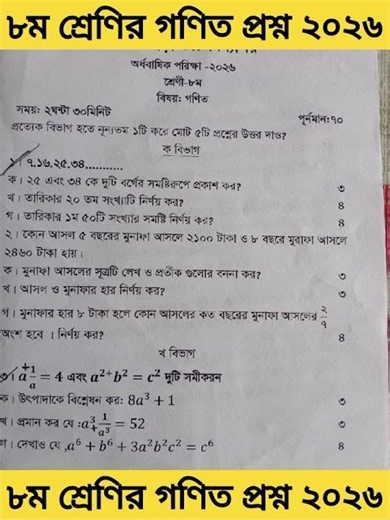 ৮ম শ্রেণির গণিত প্রশ্ন ২০২৬
অর্ধবার্ষিক পরিক্ষা -২০২৬
শ্রেণী-৮ম
বিষয়: গণিত
সময়: ২ঘন্টা ৩০মিনিট
পূর্নমান:৭০
প্রত্যেক বিভাগ হতে নূন্যতম ১টি করে মোট ৫টি প্রশ্নের উত্তর দাও?
ক বিভাগ
১। ৭.১৬.২৫.৩৪...........
ক। ২৫ এবং ৩৪ কে দুটি বর্গের সমষ্টিরুপে প্রকাশ কর? ৩
খ। তারিকার ২০ তম সংখ্যাটি নির্ণয় কর? ৪
গ। তারিকার ১ম ৫০টি সংখ্যার সমষ্টি নির্ণয় কর? ৪
২। কোন আসল ৫ বছরের মুনাফা আসলে ২১০০ টাকা ও ৮ বছরে মুরাফা আসলে
২৪৬০ টাকা হায়।
ক। মুনাফা আসলের সূত্রটি লেখ ও প্রতীক গুলোর বননা কর? ৩
খ। আসল ও মুনাফার হার নির্ণয় কর? ৩
গ। মুনাফার হার ৮ টাকা হলে কোন আসলের কত বছরের মুনাফা আসলের ২/৭
অংশ হবে । নির্ণয় কর? ৪
খ বিভাগ
৩। a+1/a = 4 এবং a²⁺b² = c² দুটি সমীকরন
ক। উৎপাদাকে বিশ্লেষন কর: 8a³ + 1 ৩
খ। প্রমান কর যে :a³+1/a³ = 52 ৩
গ। দেখাও যে ,a⁶ + b⁶ + 3a²b²c² = c⁶ ৪
৮ম শ্রেণির গণিত প্রশ্ন ২০২৬